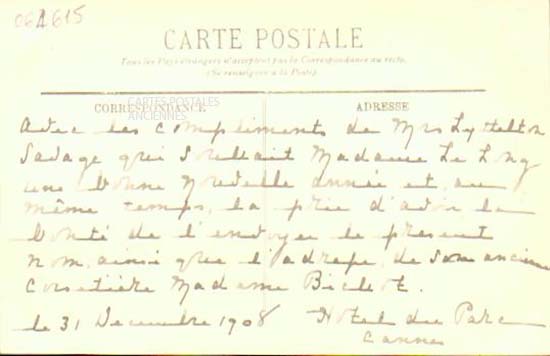 064615
CARTE POSTALE
Tous les Pays étrangers n'acceptent pas la Correspondance au recto.
(Se renseigner à la Poste).
CORRESPONDANCE
ADRESSE
CARTES POSTALES
ANCIENNES
Avec les compliments de Mrs Lyttelton
Savage qui souhait Madame Le Long
une bonne nouvelle année et, au
même temps, la prie d'avoir la
bonté de l'envoyer le présent
nom, ainsi que l'adresse, de son ancienne
Corsetière Madame Bichot.
le 31 Decembre 1908 Hotel du Parc
Cannes